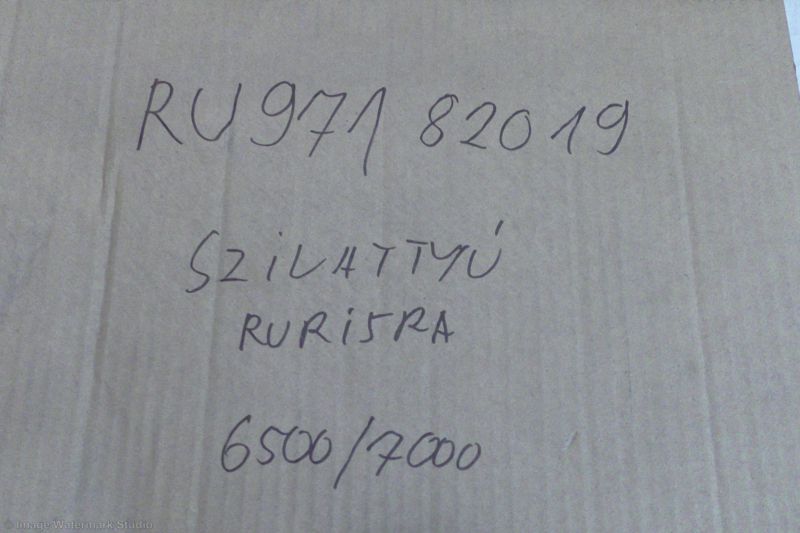 RU971 82019
SZILATTYÚ
RURISRA
6500/7000
© Image Watermark Studio